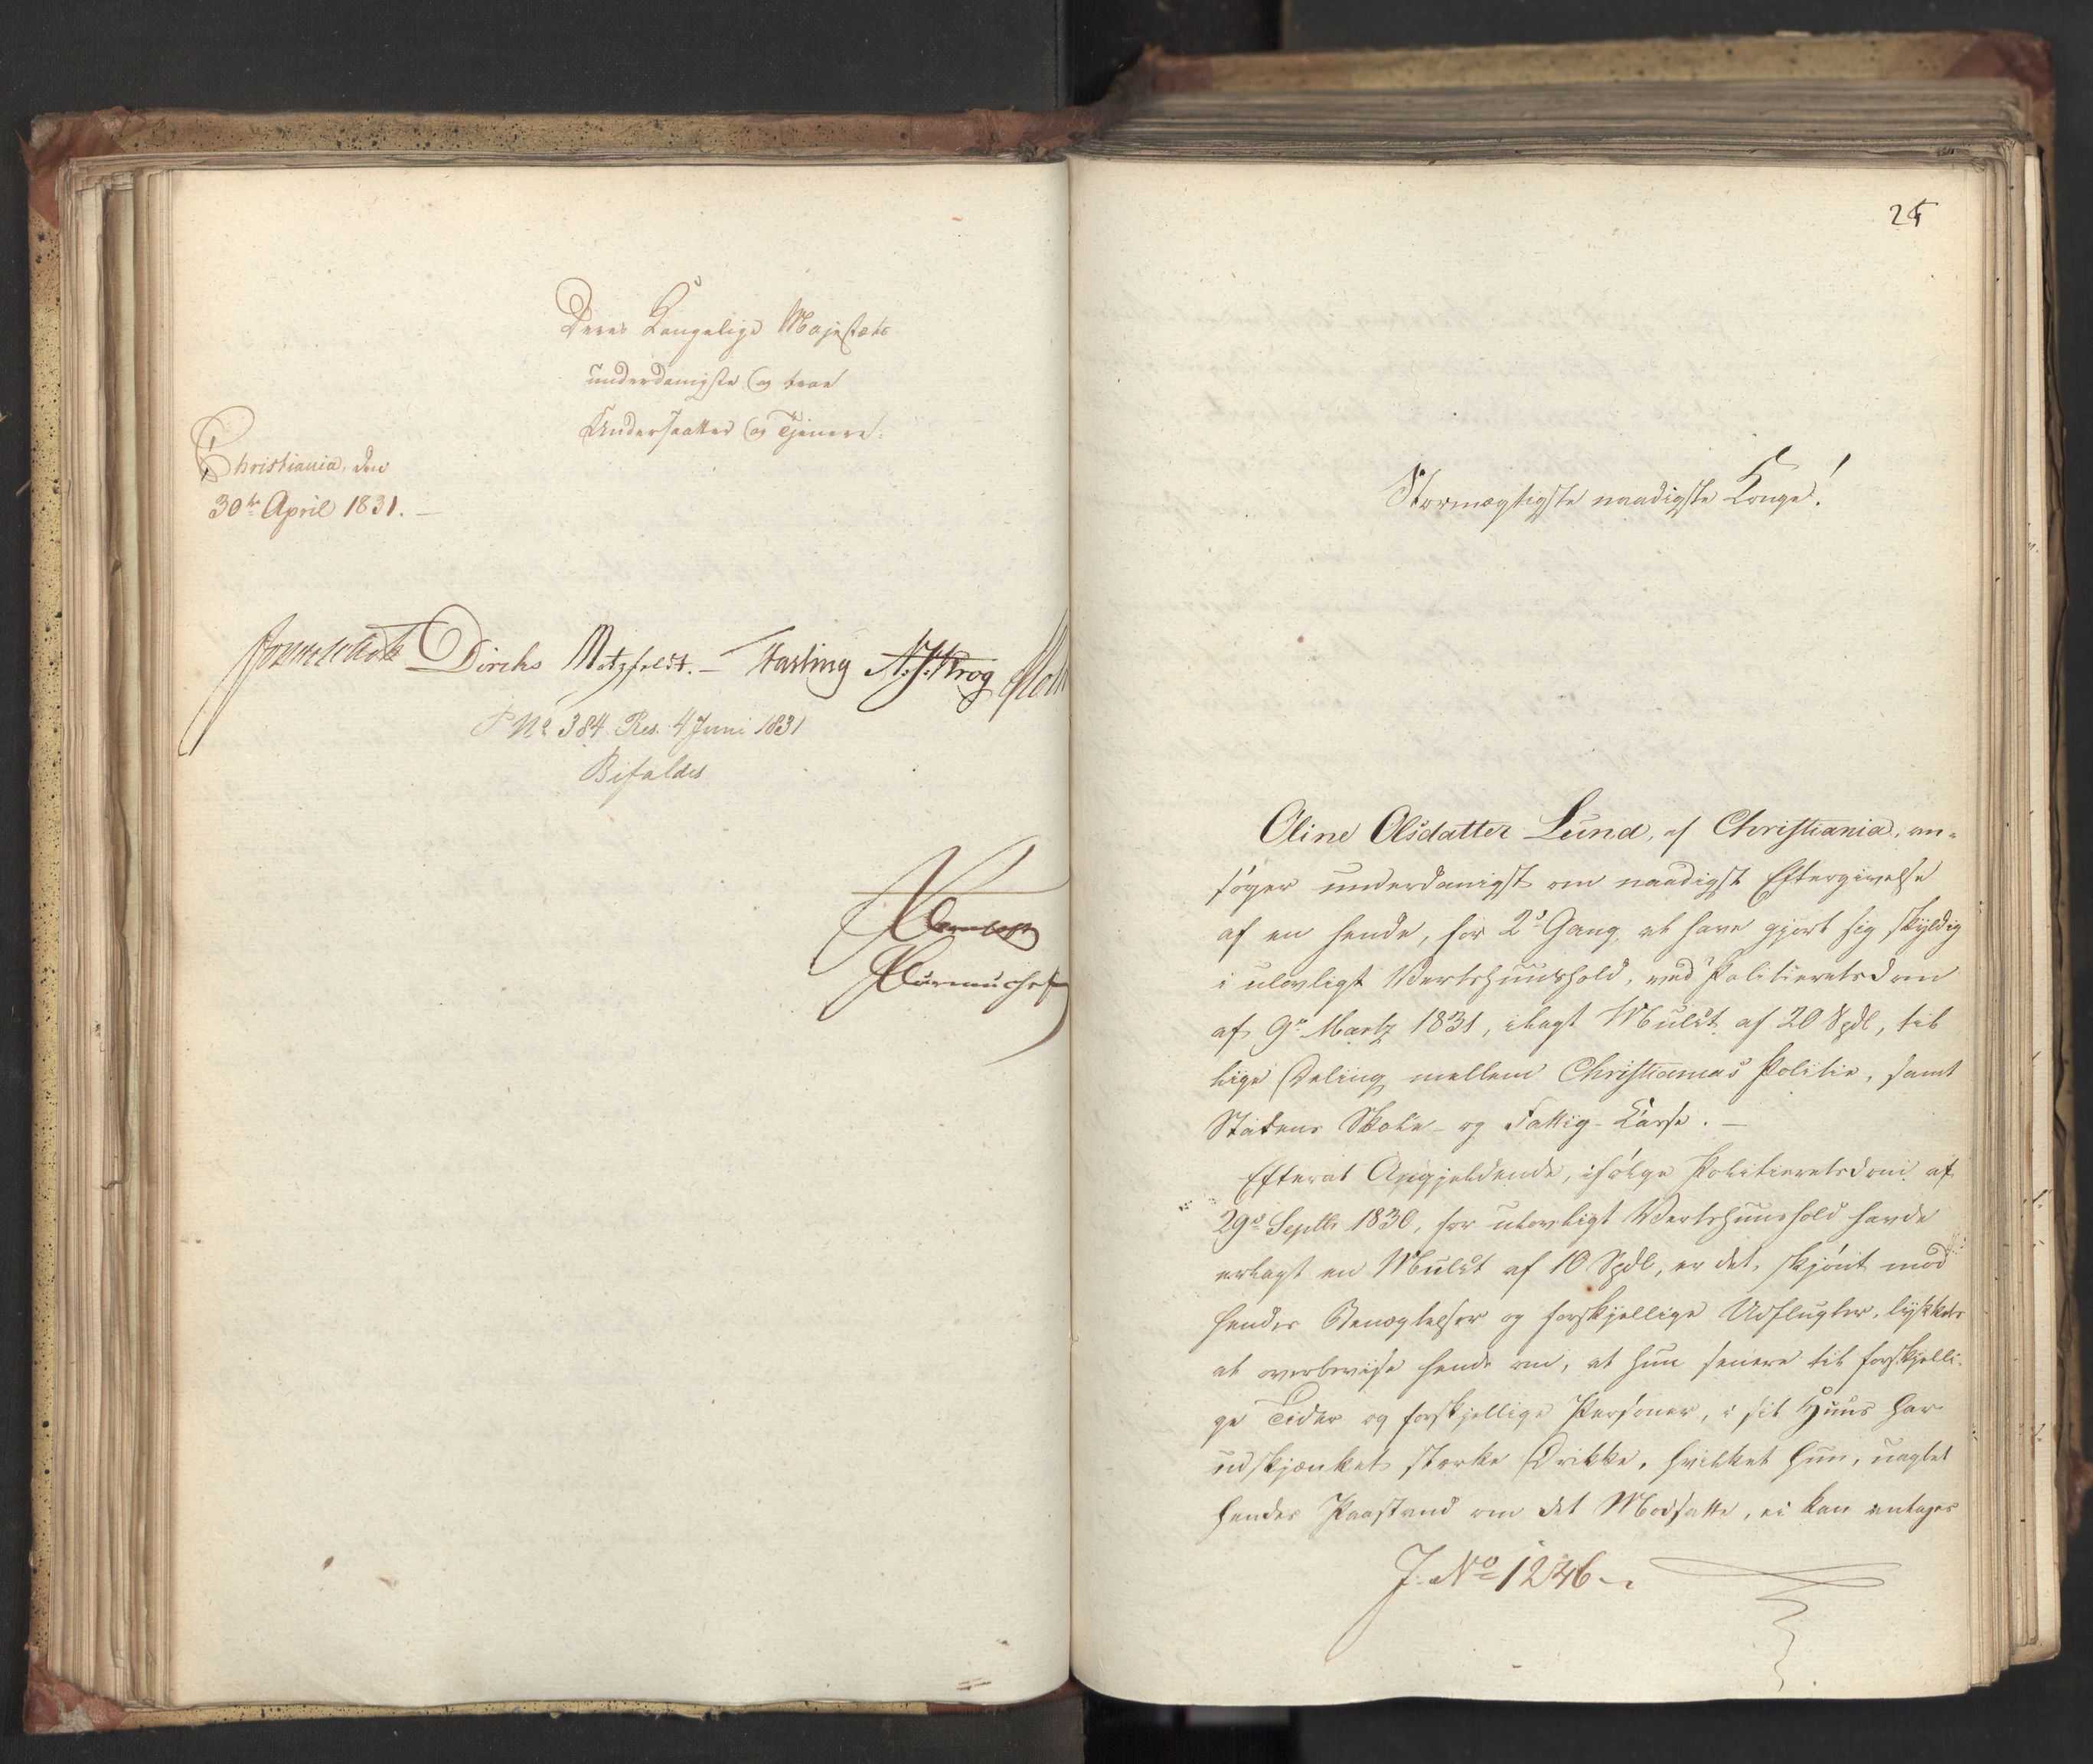 Deres Kongelige Majestæts
underdanigste og troe
Undersaatter og Tjenere.
Christiania, den
30te April 1831. —
Diriks Motzfeldt. — Fasting N. J. Krog
P No 384. Res. 4 Juni 1831
Bifaldes
25
Stormægtigste naadigste Konge!
Oline Olsdatter Lund, af Christiania, an-
søger underdanigst om naadigst Eftergivelse
af en hende, for 2den Gang at have gjort sig skyldig
i ulovligt Vertshuushold, ved Politieretsdom
af 9de Martz 1831, ilagt Mulct af 20 Spdl, til
lige Deling mellem Christianias Politie, samt
Stadens Skole- og Fattig-Casse. —
Efterat Angjeldende, ifølge Politieretsdom af
29de Septbr 1830, for ulovligt Vertshuushold havde
erlagt en Mulct af 10 Spdl, er det, skjönt mod
hendes Benægtelser og forskjellige Udflugter, lykkedes
at overbevise hende om, at hun senere til forskjelli-
ge Tider og forskjellige Personer, i sit Huus har
udskjænket stærke Drikke, hvilket hun, uagtet
hendes Paastand om det Modsatte, ei kan antages
J. No 1246